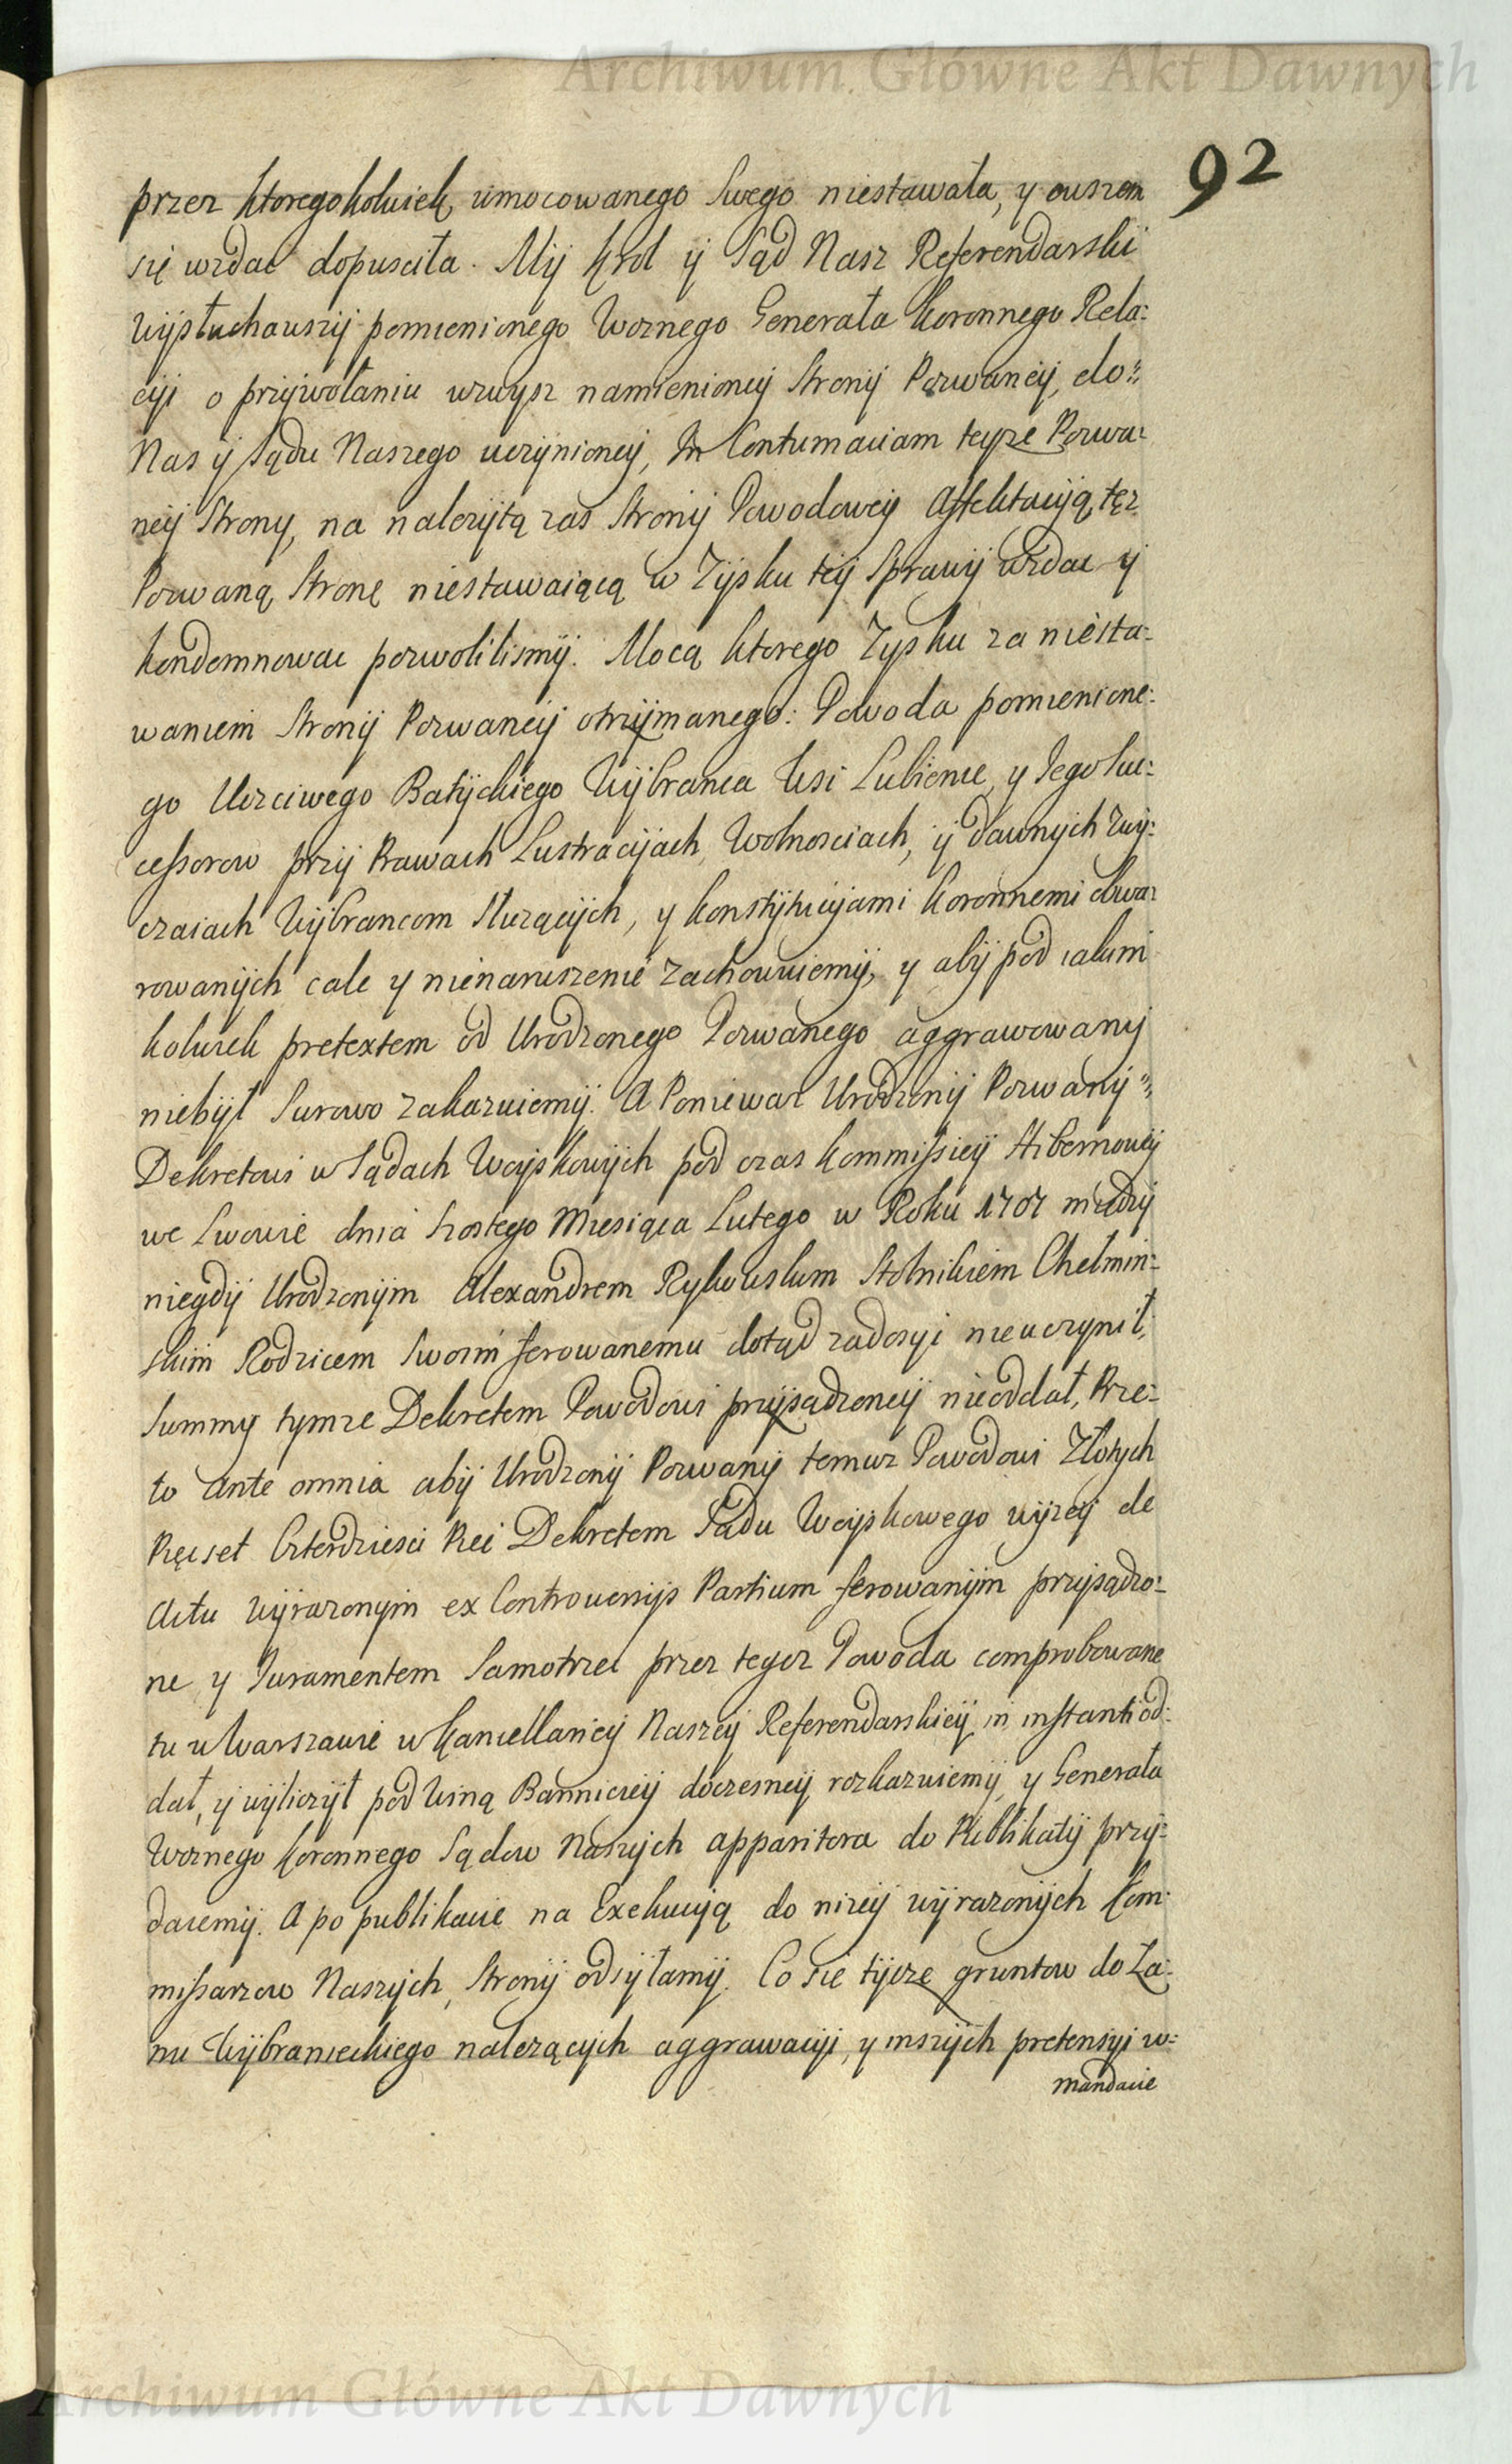 Archiwum Główne Akt Dawnych
92
przez ktoregokolwiek umocowanego Swego niestawała, y owszem
się wzdac dopusciła. Mÿ Krol ÿ Sąd Nasz Referendarski
Wÿsłuchawszÿ pomienionego Woznego Generała Koronnego Rela:
cÿi o przÿwołaniu wzwysz namienioneÿ Stronÿ Pozwaneÿ, do:
Nas ÿ Sądu Naszego uczÿnioneÿ, In Contumaciam teyże Pozwa:
neÿ Strony, na nalezÿtą zas Stronÿ Powodoweÿ Affektacÿą, tęz
Pozwaną Stronę niestawaiącą w Zÿsku teÿ Sprawÿ wzdac ÿ
kondemnowac pozwolilismÿ. Mocą ktorego Zysku za niesta:
waniem Stronÿ Pozwaneÿ otrzÿmanego: Powoda pomienione:
go Uczciwego Batÿckiego Wÿbranca Wsi Lubience, y Jego Suc:
cessorow przÿ Prawach Lustracÿach, Wolnosciach, ÿ dawnÿch zwÿ:
czaiach Wÿbrancom słuzącÿch, y Konstÿtucÿami Koronnemi obwa:
rowanÿch cale y nienaruszenie zachowuiemÿ, y abÿ pod iakim
kolwiek pretextem od Urodzonego Pozwanego aggrawowanÿ
niebÿł Surowo zakazuiemÿ. A Poniewaz Urodzonÿ Pozwanÿ
Dekretowi w Sądach Woÿskowÿch pod czas Kommissieÿ Hibernoweÿ
we Lwowie dnia szostego Miesiąca Lutego w Roku 1707 miedzÿ
niegdÿ Urodzonÿm Alexandrem Rykowskim Stolnikiem Chełmin:
skim Rodzicem Swoim ferowanemu dotąd zadosyi nieuczynił,
Summy tymze Dekretem Powodowi przÿsądzoneÿ nieoddał, Prze:
to ante omnia abÿ Urodzonÿ Pozwanÿ temuz Powodowi Złotych
Pięcset Czterdziesci Pięc Dekretem Sądu Woÿskowego wÿzeÿ de
Actu Wÿrazonÿm ex Controversÿs Partium ferowanÿm przÿsądzo:
ne y Juramentem Samotrzec przez tegoz Powoda comprobowane
tu w Warszawie w Kancellarÿeÿ Naszeÿ Referendarskieÿ in instanti od:
dał, ÿ wÿliczÿł pod Winą Bannicieÿ doczesneÿ rozkazuiemÿ, y Generała
Woznego Koronnego Sądow Naszÿch apparitora do Publikatÿ przÿ:
daiemÿ. A po publikacie na Exekucÿą do nizeÿ wÿrazonÿch Kom:
missarzow Naszÿch, Stronÿ odsÿłamÿ. Co się tÿcze gruntow do Ła:
nu Wÿbranieckiego nalezących aggrawacÿi, y inszÿch pretensyi w:
mandacie
Archiwum Główne Akt Dawnych